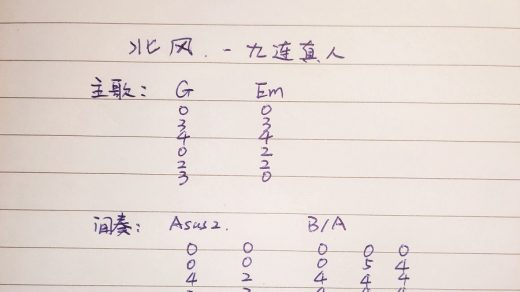 北风.-九连真人
主歌: G Em
0 0
3 3
4 4
0 2
2 2
3 0
间奏: Asus2. B/A
0 0 0 0 0
0 0 0 5 4
4 2 4 4 4